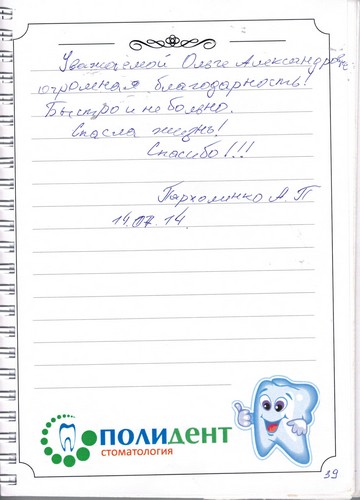 Уважаемой Ольге Александровне
огромная благодарность!
Быстро и не больно.
Спасла жизнь!
Спасибо!!!
Пархоменко А.П
14.07.14.
ПОЛИДЕНТ
СТОМАТОЛОГИЯ
39